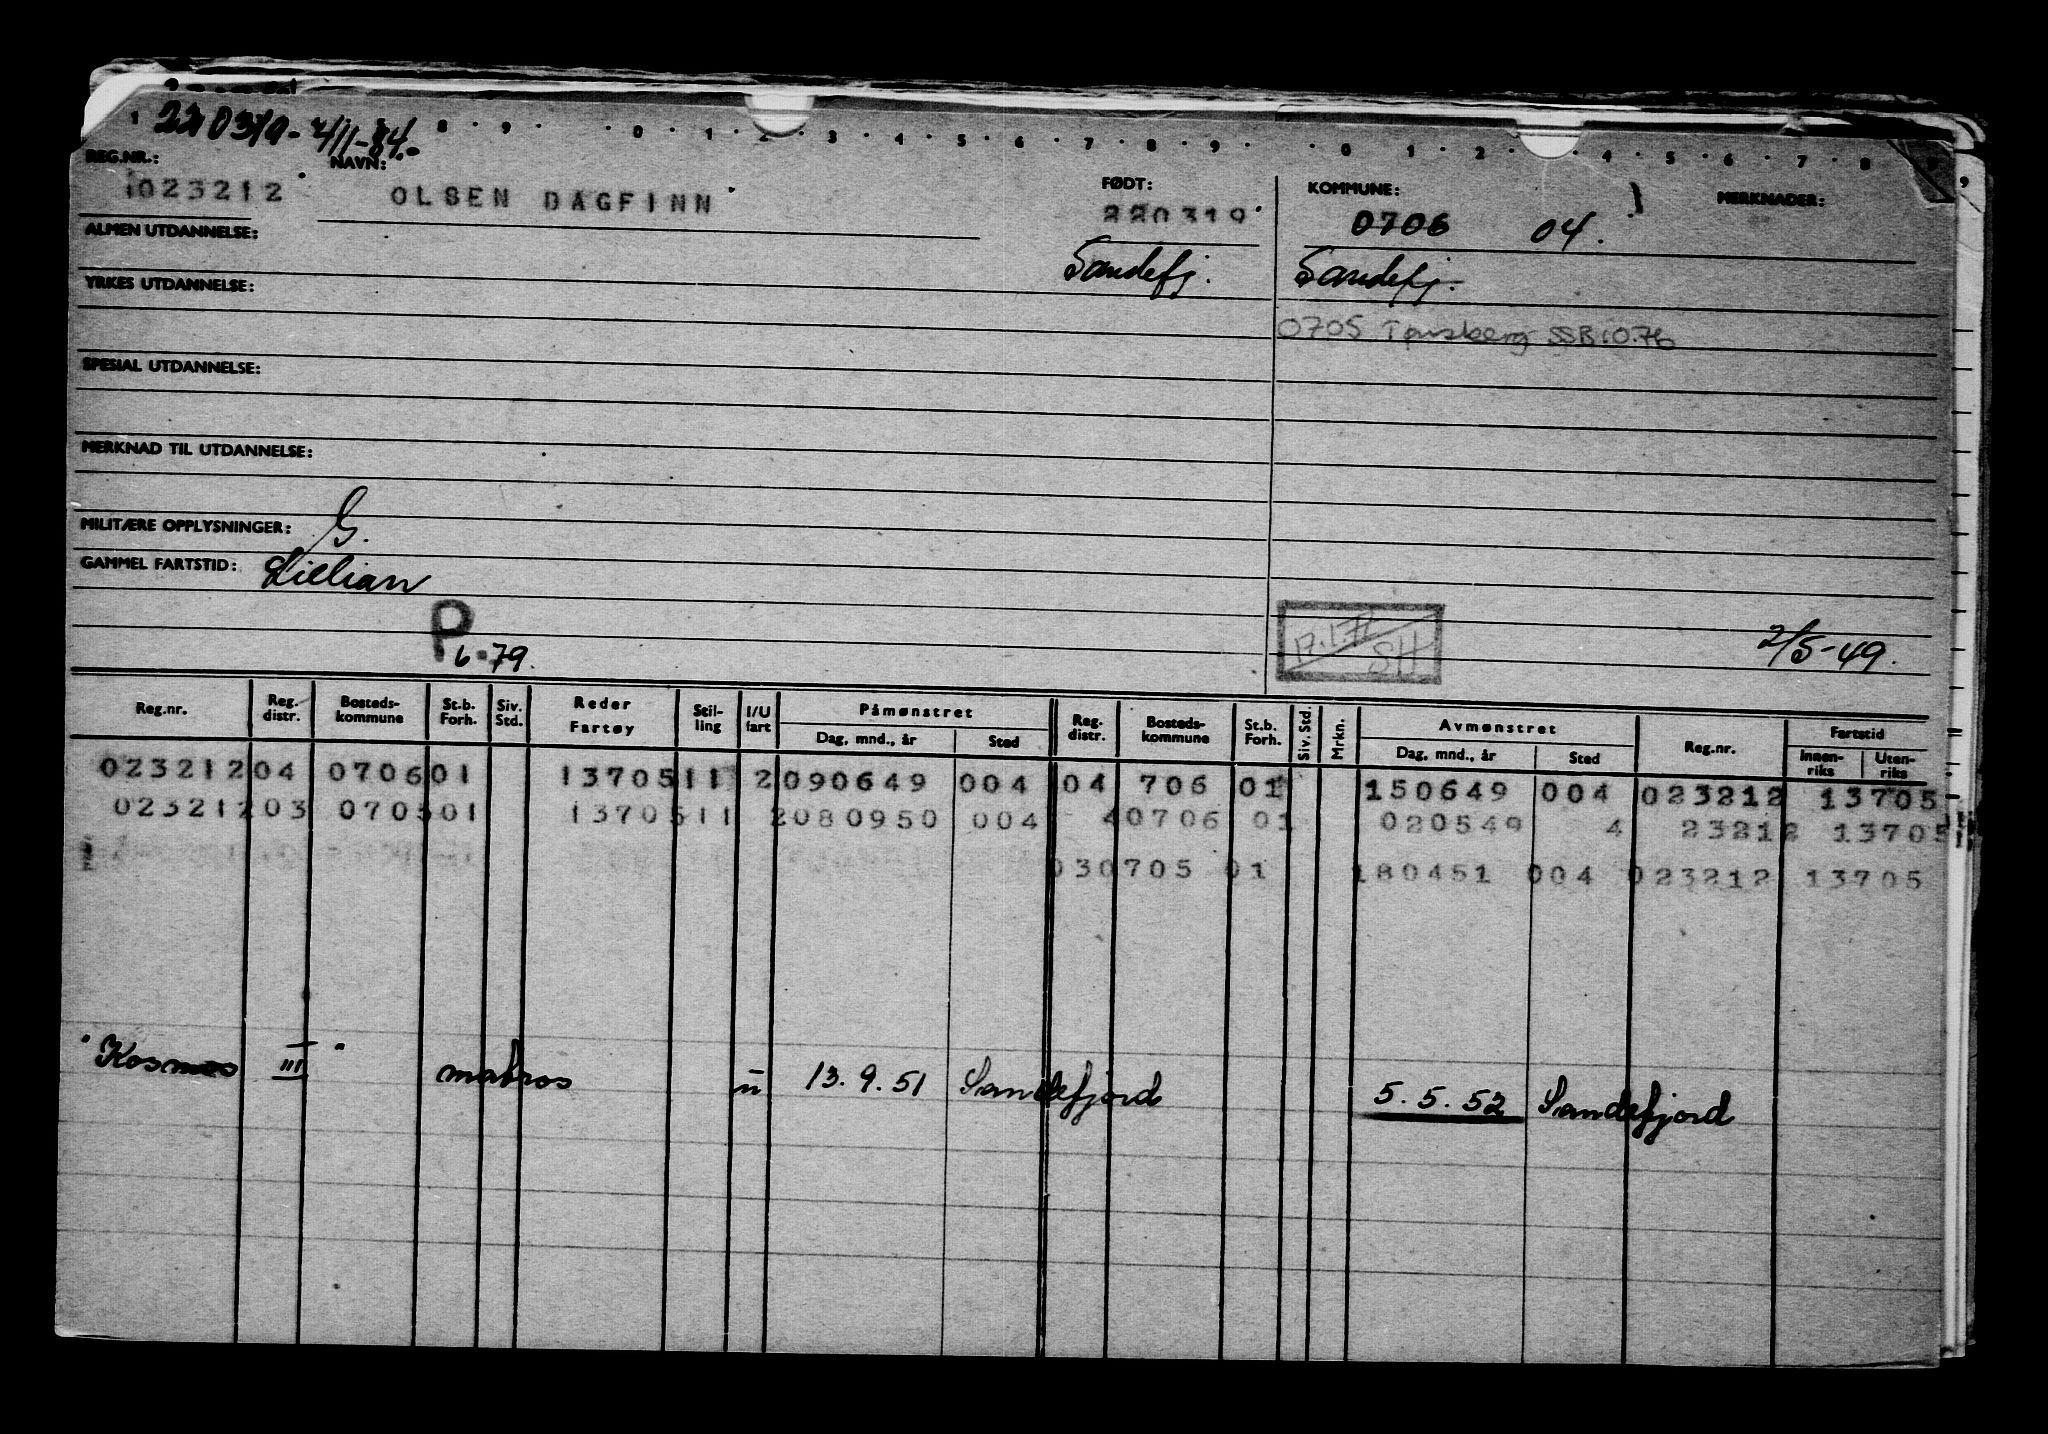 220319 - 4/11-84.-
1 8 · 9 · · 0 · 1 · 2 · 3 · 4 · 5 · 6 · 7 · 8 · 9 · · 0 · 1 · 2 · · 4 · 5 · 6 · 7 · 8 · 9
REG.NR.: NAVN: FØDT: KOMMUNE: MERKNADER:
1023212 OLSEN DAGFINN 220319 0706 04.
ALMEN UTDANNELSE: Sandefj. Sandefj.-
YRKES UTDANNELSE:
0705 Tønsberg SSB 10.76
SPESIAL UTDANNELSE:
MERKNAD TIL UTDANNELSE:
MILITÆRE OPPLYSNINGER: G.
GAMMEL FARTSTID: Lillian
P 6-79. SH 2/5-49.
Reg.nr. Reg. distr. Bosteds-kommune St.b. Forh. Siv. Std. Reder Fartøy Stil-ling I/U fart Påmønstret Dag, mnd., år Sted Reg. distr. Bosteds-kommune St.b. Forh. Siv. Std. Mrkn. Avmønstret Dag, mnd., år Sted Reg.nr. Fartstid Innen-riks Uten-riks
023212 04 0706 01 13705 11 2 090649 004 04 706 01 150649 004 023212 13705
023212 03 0705 01 13705 11 2 080950 004 4 0706 01 020549 4 23212 13705
03 0705 01 180451 004 023212 13705
"Kosmos III" matros u 13.9.51 Sandefjord 5.5.52 Sandefjord